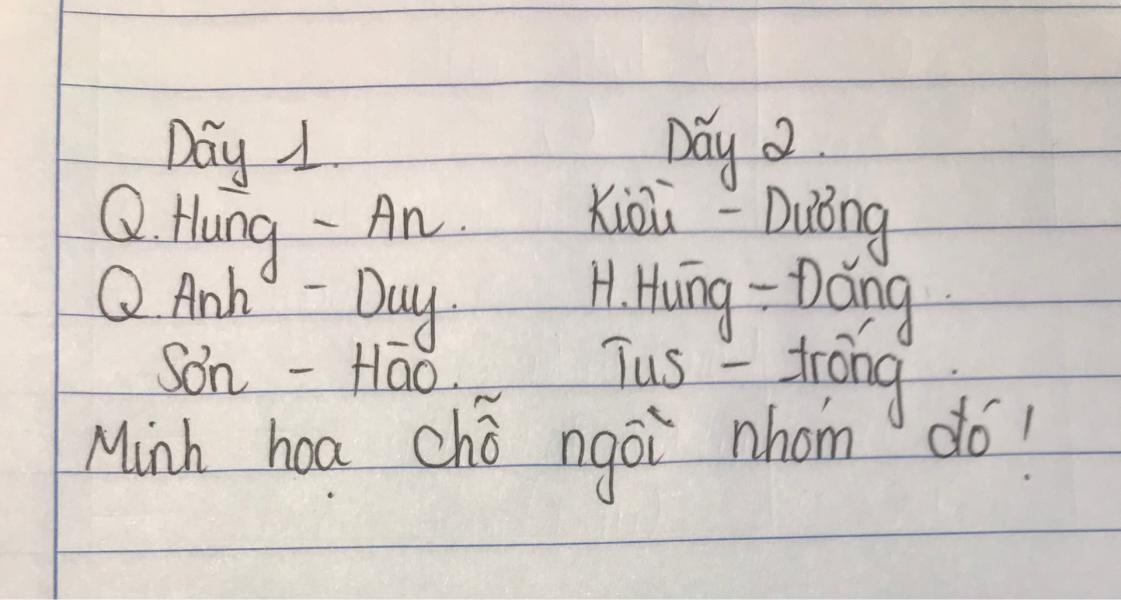 Dãy 1. Dãy 2.
Q. Hùng - An. Kiều - Dương
Q. Anh - Duy. H. Hùng - Đăng.
Sơn - Hào. Tus - trống.
Minh họa chỗ ngồi nhóm đó!